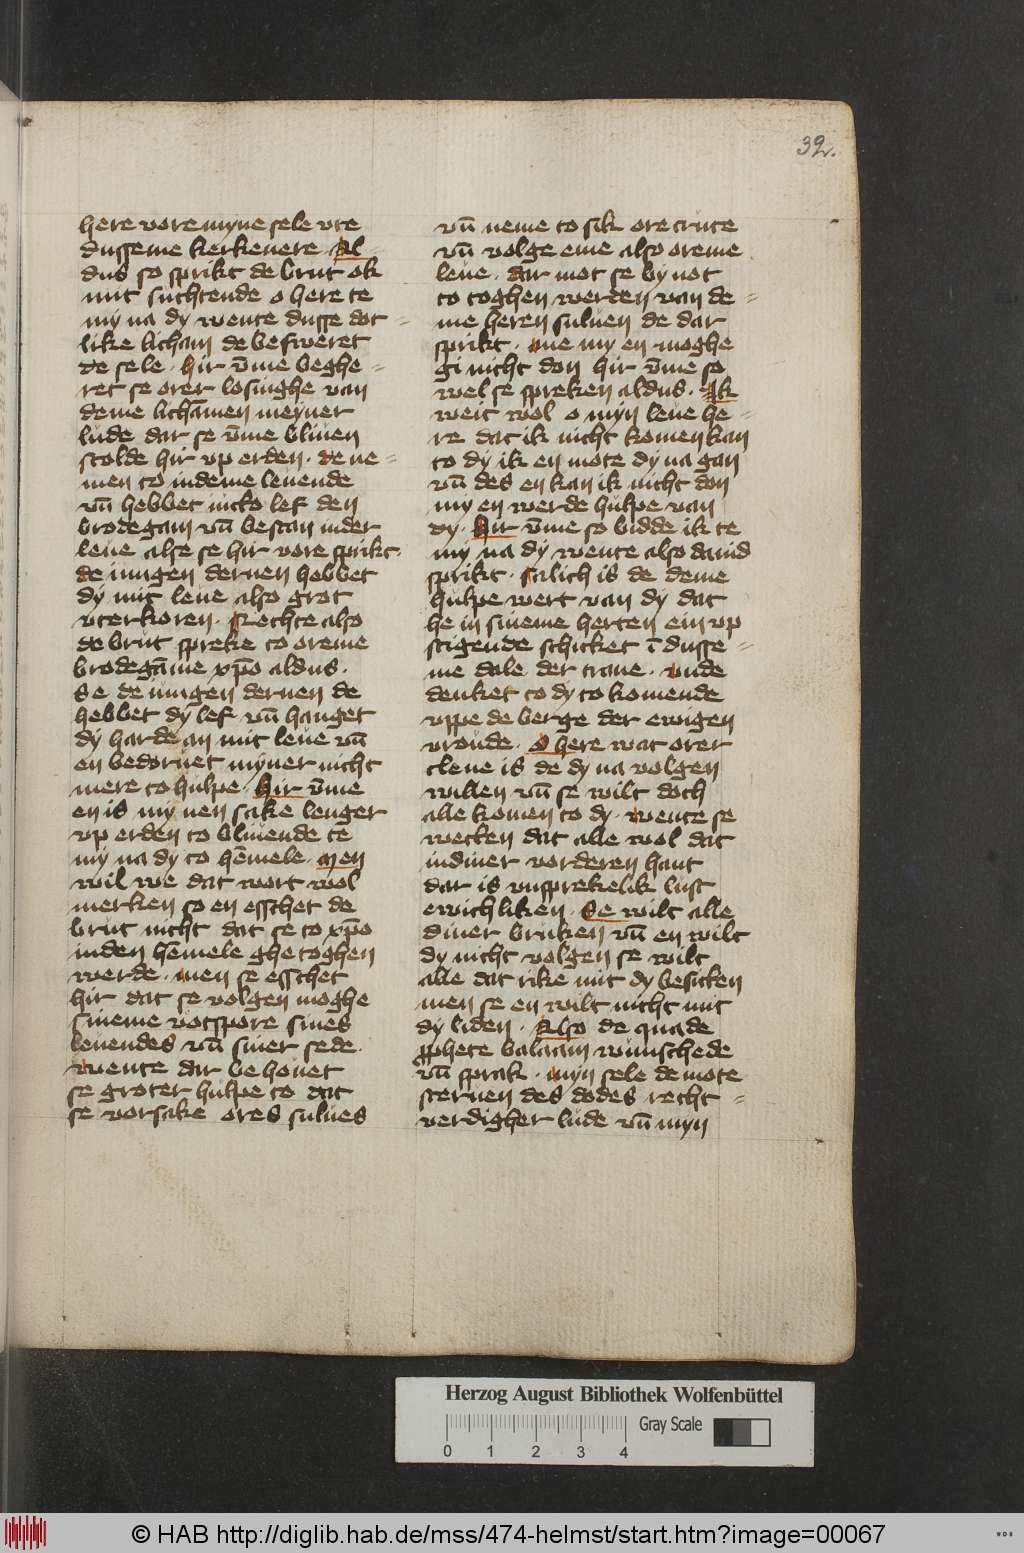 32.
here vore myne sele vte
dusseme kerkenere Al-
dus so sprikt de brut ok
mit suchtende o here te
my na dy wente dusse dot-
like licham de besweret
de sele · hir vm̄e beghe-
ret se orer losinghe van
deme lichāmen meyner
lude dar se vm̄e bliuen
scolde hir vp erden · de ne-
men to indeme leuende
vn̄ hebbet nicko lef den
brodegam vn̄ bestan inder
leue alse se hir vore sprikt·
de iungen dernen hebbet
dy mit leue also grot
vterkoren · Rechte also
de brut spreke to oreme
brodegāme xp̄o aldus ·
Se de iungen dernen de
hebbet dy lef vn̄ hanget
dy harde an mit leue vn̄
en bedoruet myner nicht
mere to hulpe · Hir vm̄e
en is my nen sake lenger
vp erden to bliuende te
my na dy to hēmele · Men
wil we dat wort wol
merken so en esschet de
brut nicht dat se to xp̄o
inden hēmele ghetoghen
werde · men se esschet
hir dat se volgen moghe
sineme votspore sines
leuendes vn̄ siner sede ·
wente dar behouet
se groter hulpe to dat
se vorsake ores sulues
vn̄ neme to sik ore cruce
vn̄ volge eme also oreme
leue · dar mot se by not
to toghen werden van de-
me heren suluen de dar
sprikt · ane my en moghe
gi nicht don hir vm̄e so
wel se spreken aldus · Ik
weit wol o myn leue he-
re dat ik nicht komen kan
to dy ik en mote dy na gan
vn̄ des en kan ik nicht don
my en werde hulpe van
dy · Hir vm̄e so bidde ik te
my na dy wente also dauid
sprikt · salich is de deme
hulpe wert van dy dat
he in sineme herten ein vp
stigende schicket ī dusse-
me dale der trane · vnde
denket to dy to komende
vppe de berge der ewigen
vroude · O here wat orer
cleue is de dy na volgen
willen vn̄ se wilt doch
alle komen to dy · wente se
wecken dat alle wol dat
indiner vorderen hant
dar is vnsprekelik lust
ewichliken · Se wilt alle
diner bruken vn̄ en wilt
dy nicht volgen se wilt
alle dat rike mit dy besitten
men se en wilt nicht mit
dy liden · Also de quade
ꝓphete balaam wunschede
vn̄ sprak · myn sele de mote
steruen des dodes recht-
verdigher lude vn̄ myn
Herzog August Bibliothek Wolfenbüttel
0 1 2 3 4 Gray Scale
© HAB http://diglib.hab.de/mss/474-helmst/start.htm?image=00067